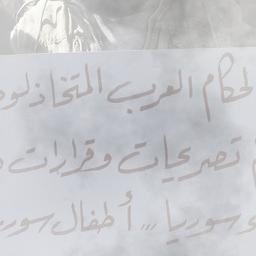 الحكام العرب المتخاذلو
تصريحات وقرارات
سوريا ,,, أطفال سور